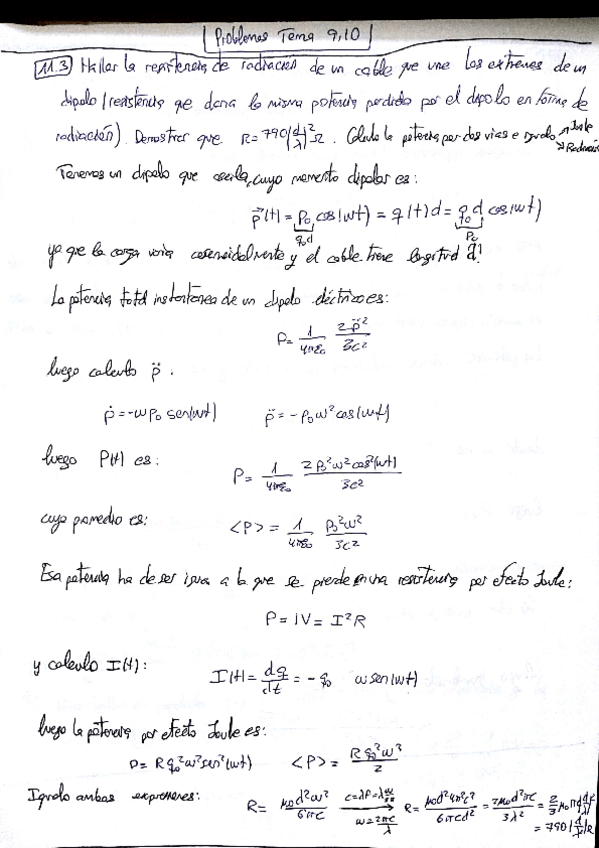 Problemas Tema 9,10
11.3) Hallar la resistencia de radiación de un cable que une los extremos de un
dipolo (resistencia que daría la misma potencia perdida por el dipolo en forma de
radiación). Demostrar que R = 790(d/λ)²Ω. Calculo la potencia por dos vias e igualo → Joule
→ Radiación
Tenemos un dipolo que oscila, cuyo momento dipolar es:
p⃗(t) = p₀ cos(wt) = q(t) d = q₀ d cos(wt)
q₀d p₀
ya que la carga varia cosenoidalmente y el cable tiene longitud d.
La potencia total instantánea de un dipolo eléctrico es:
P = 1/4πε₀ 2p̈²/3c²
luego calculo p̈ :
ṗ = -wp₀ sen(wt) p̈ = -p₀w² cos(wt)
luego P(t) es:
P = 1/4πε₀ 2p₀²w²cos²(wt)/3c²
cuyo promedio es:
<P> = 1/4πε₀ p₀²w²/3c²
Esa potencia ha de ser igual a la que se pierde en una resistencia por efecto Joule:
P = IV = I²R
y calculo I(t):
I(t) = dq/dt = -q₀ w sen(wt)
luego la potencia por efecto Joule es:
P = Rq₀²w²sen²(wt) <P> = Rq₀²w²/2
Igualo ambas expresiones:
R = μ₀d²w²/6πc c=λf=λw/2π → w=2πc/λ R = μ₀d²4π²c²/6πcλ² = 2μ₀d²πc/3λ² = 2/3 μ₀πc
= 790(d/λ)²